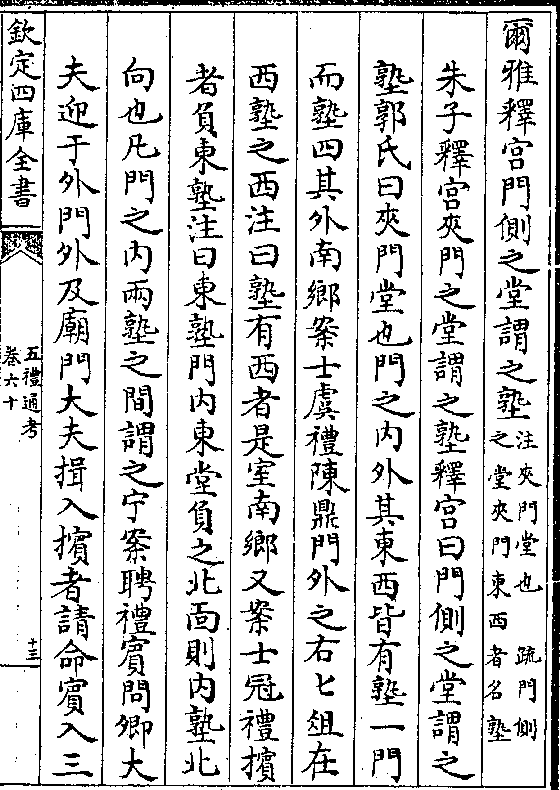 爾雅釋宮門側之堂謂之塾注夾門堂也 疏門側
之堂夾門東西者名塾
朱子釋宮夾門之堂謂之塾釋宮曰門側之堂謂之
塾郭氏曰夾門堂也門之内外其東西皆有塾一門
而塾四其外南鄉案士虞禮陳鼎門外之右匕俎在
西塾之西注曰塾有西者是室南鄉又案士冠禮擯
者負東塾注曰東塾門内東堂負之北面則内塾北
向也凡門之内兩塾之間謂之宁案聘禮賓問卿大
夫迎于外門外及廟門大夫揖入擯者請命賓入三
欽定四庫全書
五禮通考
卷六十
十三